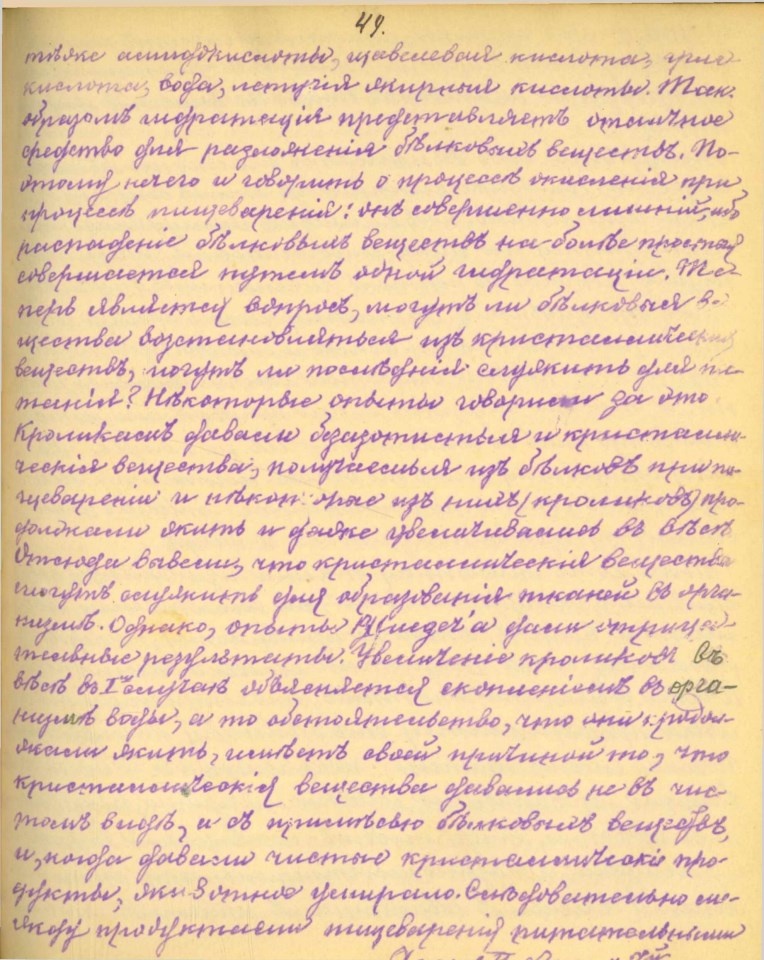 49.
тѣже амидокислоты, щавелевая кислота, грис-
кислота, вода, летучія жирныя кислоты. Так.
образомъ гидратація представляетъ отличное
средство для разложенія бѣлковыхъ веществъ. По-
этому нечего и говорить о процессѣ окисленія при
процессѣ пищеваренія: онъ совершенно лишній, ибо
распаденіе бѣлковыхъ веществъ на болѣе простыя
совершается путемъ одной гидратаціи. Те-
перь является вопросъ, могутъ ли бѣлковыя ве-
щества возстановляться изъ кристаллическихъ
веществъ, могутъ ли послѣднія служить для пи-
танія? Нѣкоторые опыты говорили за это.
Кроликамъ давали безазотистыя и кристалли-
ческія вещества, получаемыя изъ бѣлковъ при пи-
щевареніи и нѣкоторые изъ нихъ (кроликовъ) про-
должали жить и даже увеличивались въ вѣсѣ
Отсюда вывели, что кристаллическія вещества
могутъ служить для образованія тканей въ орга-
низмѣ. Однако, опыты дали отрица-
тельные результаты. Увеличеніе кроликовъ въ
вѣсѣ въ Iмъ случаѣ объясняется скопленіемъ въ орга-
низмѣ воды, а то обстоятельство, что они продол-
жали жить, имѣетъ своей причиной то, что
кристаллическія вещества давались не въ чис-
томъ видѣ, а съ примѣсью бѣлковыхъ веществъ,
и, когда давали чистые кристаллическіе про-
дукты, животное умирало. Слѣдовательно ме-
жду продуктами пищеваренія питательными